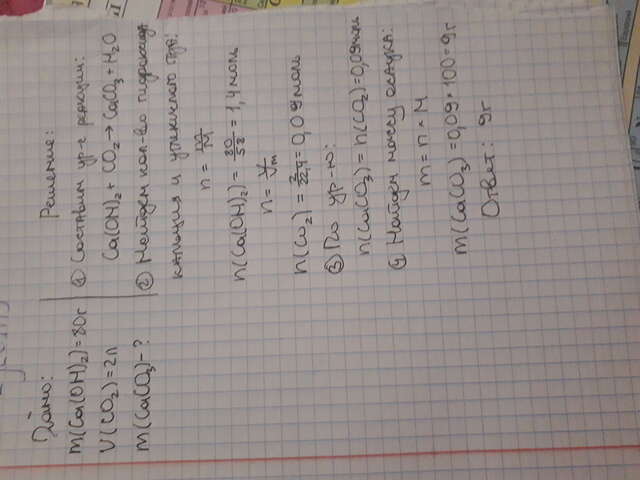 Дано:
m(Ca(OH)₂)=80г
V(CO₂)=2л
m(CaCO₃)-?
Решение:
① Составим ур-е реакции:
Ca(OH)₂ + CO₂ → CaCO₃ + H₂O
② Найдем кол-во гидроксида
кальция и углекислого газа:
n = m/M
n(Ca(OH)₂) = 80/58 = 1,4 моль
n = V/Vm
n(CO₂) = 2/22,4 = 0,09 моль
③ По ур-ю:
n(CaCO₃) = n(CO₂) = 0,09 моль
④ Найдем массу осадка:
m = n × M
m(CaCO₃) = 0,09 × 100 = 9г
Ответ: 9г